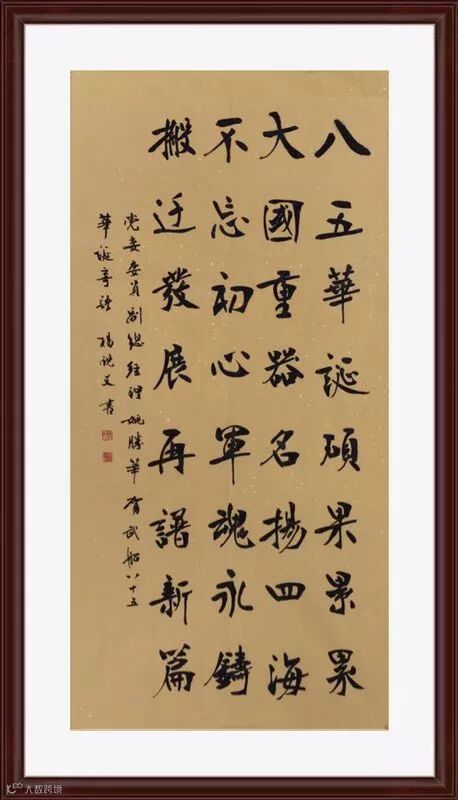 八五華誕碩果累累
大國重器名揚四海
不忘初心軍魂永鑄
搬迁發展再譜新篇
党委委員副總經理姚勝華賀武船八十五
華誕寄語 楊 書
大数跨境